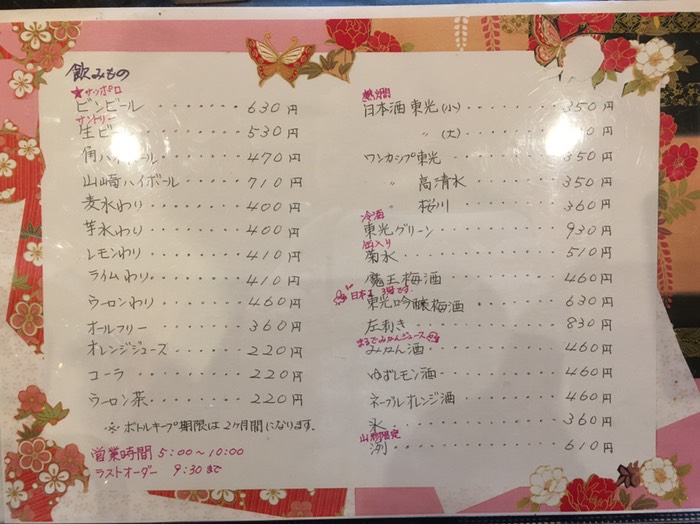 飲みもの
★サッポロ
ビンビール ・・・・・・・ 630円
サントリー
生ビール ・・・・・・・ 530円
角ハイボール ・・・・・・ 470円
山崎ハイボール ・・・・・ 710円
麦水わり ・・・・・・・ 400円
芋水わり ・・・・・・・ 400円
レモンわり ・・・・・・ 410円
ライムわり ・・・・・・ 410円
ウーロンわり ・・・・・ 460円
オールフリー ・・・・・ 360円
オレンジジュース ・・・・ 220円
コーラ ・・・・・・・ 220円
ウーロン茶 ・・・・・・ 220円
※ボトルキープ期限は2ヶ月間になります。
営業時間 5:00〜10:00
ラストオーダー 9:30まで
熱燗
日本酒 東光(小) ・・・・・・ 350円
〃 (大) ・・・・・・ 円
ワンカップ東光 ・・・・・・ 350円
〃 高清水 ・・・・・・ 350円
〃 桜川 ・・・・・・ 360円
冷酒
東光グリーン ・・・・・・ 930円
缶入り
菊水 ・・・・・・ 510円
魔王梅酒 ・・・・・・ 460円
日本 です
東光吟醸梅酒 ・・・・・・ 630円
左利き ・・・・・・ 830円
まるでみかんジュース
みかん酒 ・・・・・・ 460円
ゆずレモン酒 ・・・・・・ 460円
ネーブルオレンジ酒 ・・・・・・ 460円
氷 ・・・・・・ 360円
山形限定
洌 ・・・・・・ 610円